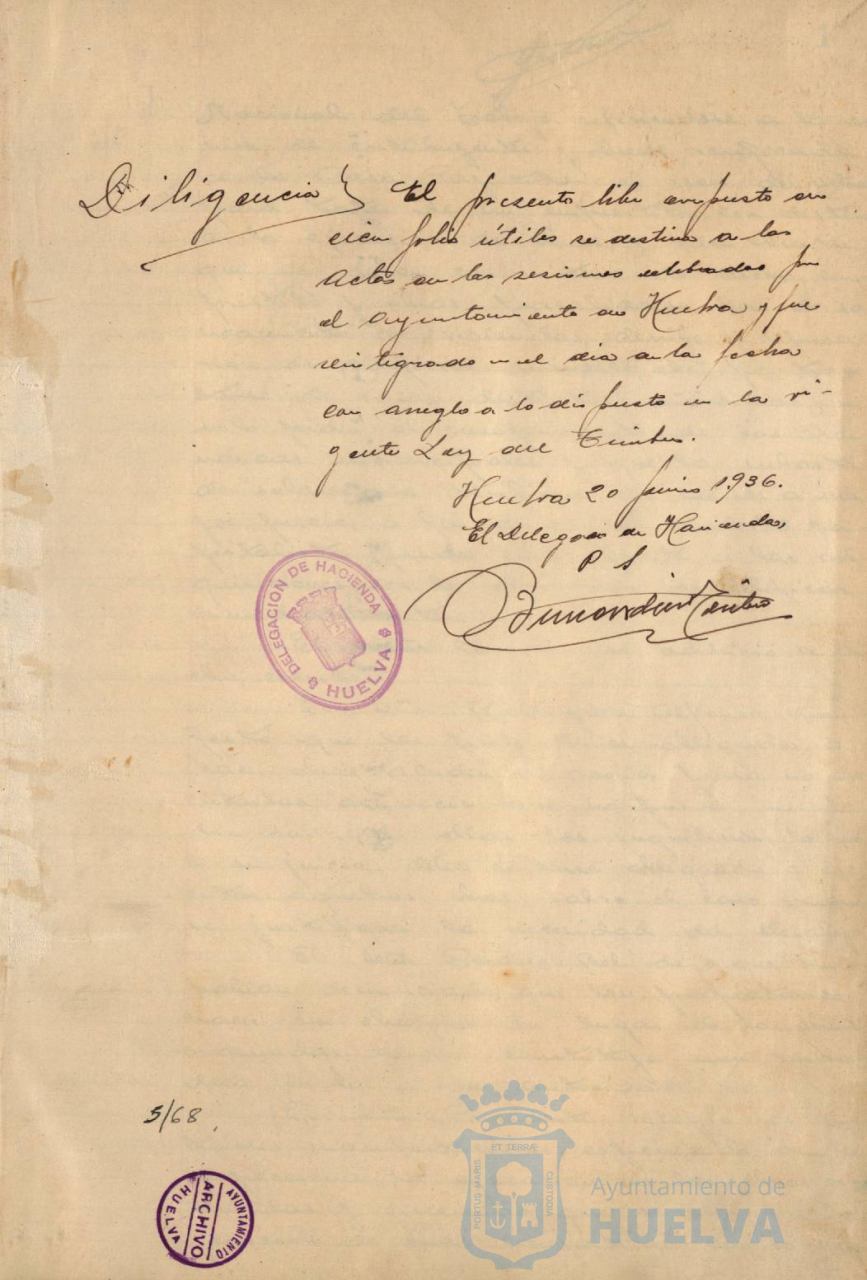 Diligencia} El presente libro compuesto de
cien folios útiles se destina a las
Actas de las sesiones celebradas por
el Ayuntamiento de Huelva y fue
reintegrado en el dia de la fecha
con arreglo a lo dispuesto en la vi-
gente Ley del Timbre.
Huelva 20 Junio 1936.
El Delegado de Hacienda,
P S
DELEGACION DE HACIENDA
HUELVA
5/68
AYUNTAMIENTO
ARCHIVO
HUELVA
PORTUS MARIS
ET TERRÆ
CUSTODIA
Ayuntamiento de
HUELVA